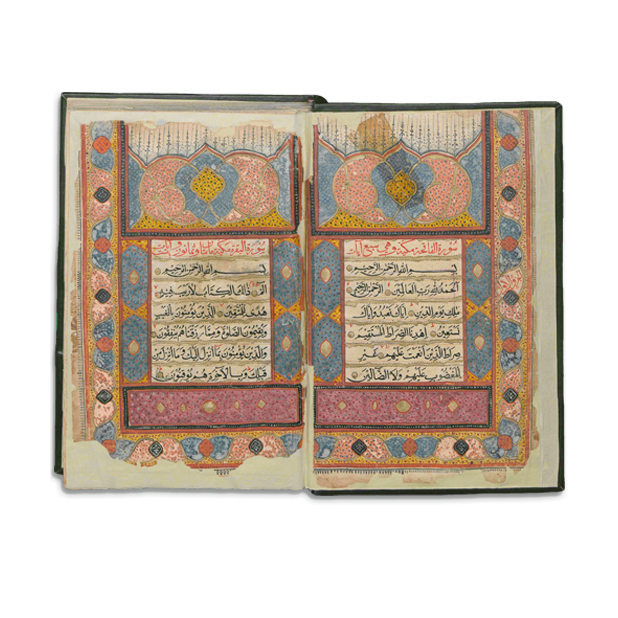 سورة الفاتحة مكية وهي سبع ايات
بسم الله الرحمن الرحيم
الحمد لله رب العالمين الرحمن الرحيم
ملك يوم الدين اياك نعبد واياك
نستعين اهدنا الصراط المستقيم
صراط الذين انعمت عليهم غير
المغضوب عليهم ولا الضالين
سورة البقرة
بسم الله الرحمن الرحيم
الم ذلك الكتاب لا ريب فيه
هدى للمتقين الذين يؤمنون بالغيب
ويقيمون الصلوة ومما رزقناهم ينفقون
والذين يؤمنون بما انزل اليك وما انزل من
قبلك وبالآخرة هم يوقنون